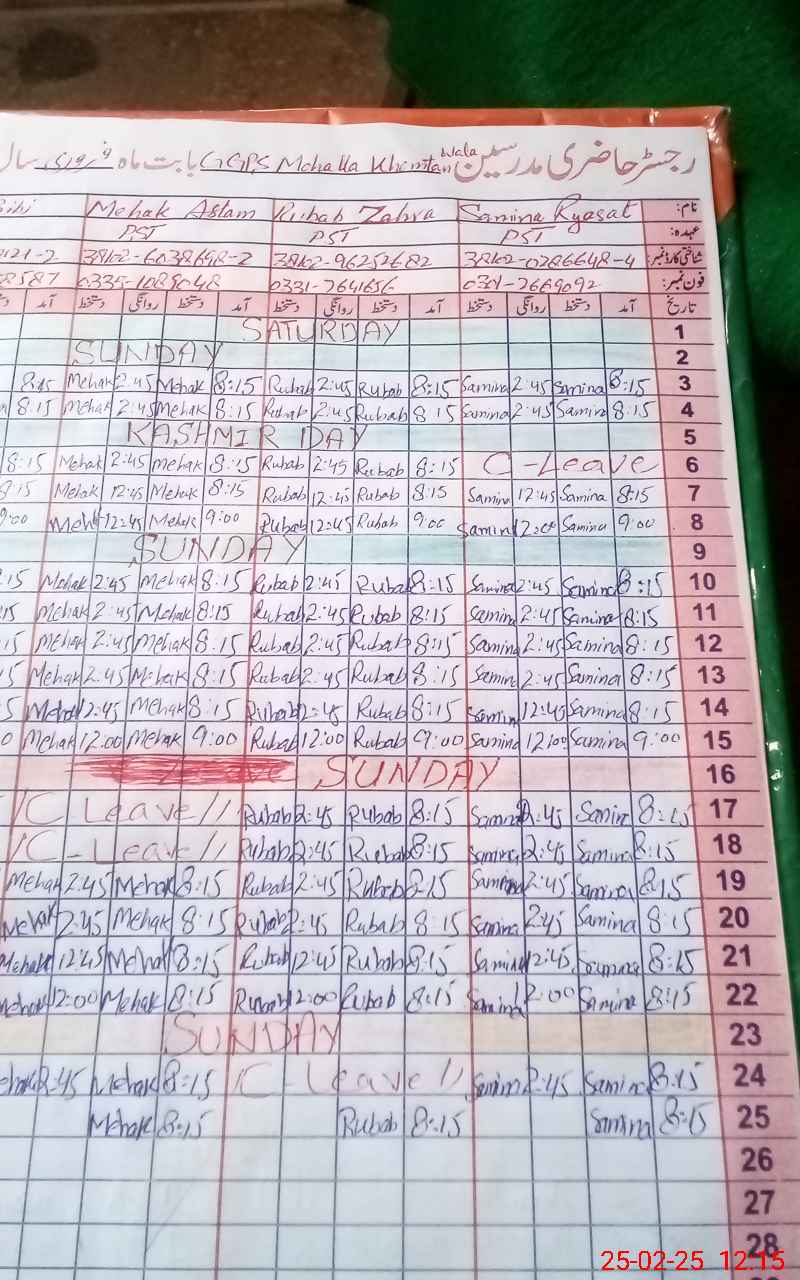 رجسٹر حاضری مدرسین GGPS Mohalla Khomtan Wala بابت ماہ فروری سال
نام: Samina Ryasat Rubab Zahra Mehak Aslam Bibi
عہدہ: PST PST PST
شناختی کارڈ نمبر: 38102-0286648-4 38102-96252682 38102-6038698-2 2121-2
فون نمبر: 0301-7669092 0331-7641656 0335-1089048 8587
تاریخ آمد دستخط روانگی دستخط آمد دستخط روانگی دستخط آمد دستخط روانگی دستخط آمد
SATURDAY 1
SUNDAY 2
8:15 Mehak 2:45 Mehak 8:15 Rubab 2:45 Rubab 8:15 Samina 2:45 Samina 8:15 3
8:15 Mehak 2:45 Mehak 8:15 Rubab 2:45 Rubab 8:15 Samina 2:45 Samina 8:15 4
KASHMIR DAY 5
8:15 Mehak 2:45 mehak 8:15 Rubab 2:45 Rubab 8:15 C-Leave 6
8:15 Mehak 12:45 Mehak 8:15 Rubab 12:45 Rubab 8:15 Samina 12:45 Samina 8:15 7
9:00 Mehak 12:45 Mehak 9:00 Rubab 12:45 Rubab 9:00 Samina 12:00 Samina 9:00 8
SUNDAY 9
:15 Mehak 2:45 Mehak 8:15 Rubab 2:45 Rubab 8:15 Samina 2:45 Samina 8:15 10
:15 Mehak 2:45 Mehak 8:15 Rubab 2:45 Rubab 8:15 Samina 2:45 Samina 8:15 11
:15 Mehak 2:45 Mehak 8:15 Rubab 2:45 Rubab 8:15 Samina 2:45 Samina 8:15 12
5 Mehak 2:45 Mehak 8:15 Rubab 2:45 Rubab 8:15 Samina 2:45 Samina 8:15 13
5 Mehak 2:45 Mehak 8:15 Rubab 2:45 Rubab 8:15 Samina 12:45 Samina 8:15 14
0 Mehak 12:00 Mehak 9:00 Rubab 12:00 Rubab 9:00 Samina 12:00 Samina 9:00 15
SUNDAY 16
C Leave // Rubab 2:45 Rubab 8:15 Samina 2:45 Samina 8:15 17
C-Leave // Rubab 2:45 Rubab 8:15 Samina 2:45 Samina 8:15 18
Mehak 2:45 Mehak 8:15 Rubab 2:45 Rubab 8:15 Samina 2:45 Samina 8:15 19
Mehak 2:45 Mehak 8:15 Rubab 2:45 Rubab 8:15 Samina 2:45 Samina 8:15 20
Mehak 12:45 Mehak 8:15 Rubab 12:45 Rubab 8:15 Samina 12:45 Samina 8:15 21
Mehak 12:00 Mehak 8:15 Rubab 12:00 Rubab 8:15 Samina 12:00 Samina 8:15 22
SUNDAY 23
Mehak 2:45 Mehak 8:15 C-Leave // Samina 2:45 Samina 8:15 24
Mehak 8:15 Rubab 8:15 Samina 8:15 25
26
27
28
25-02-25 12.15